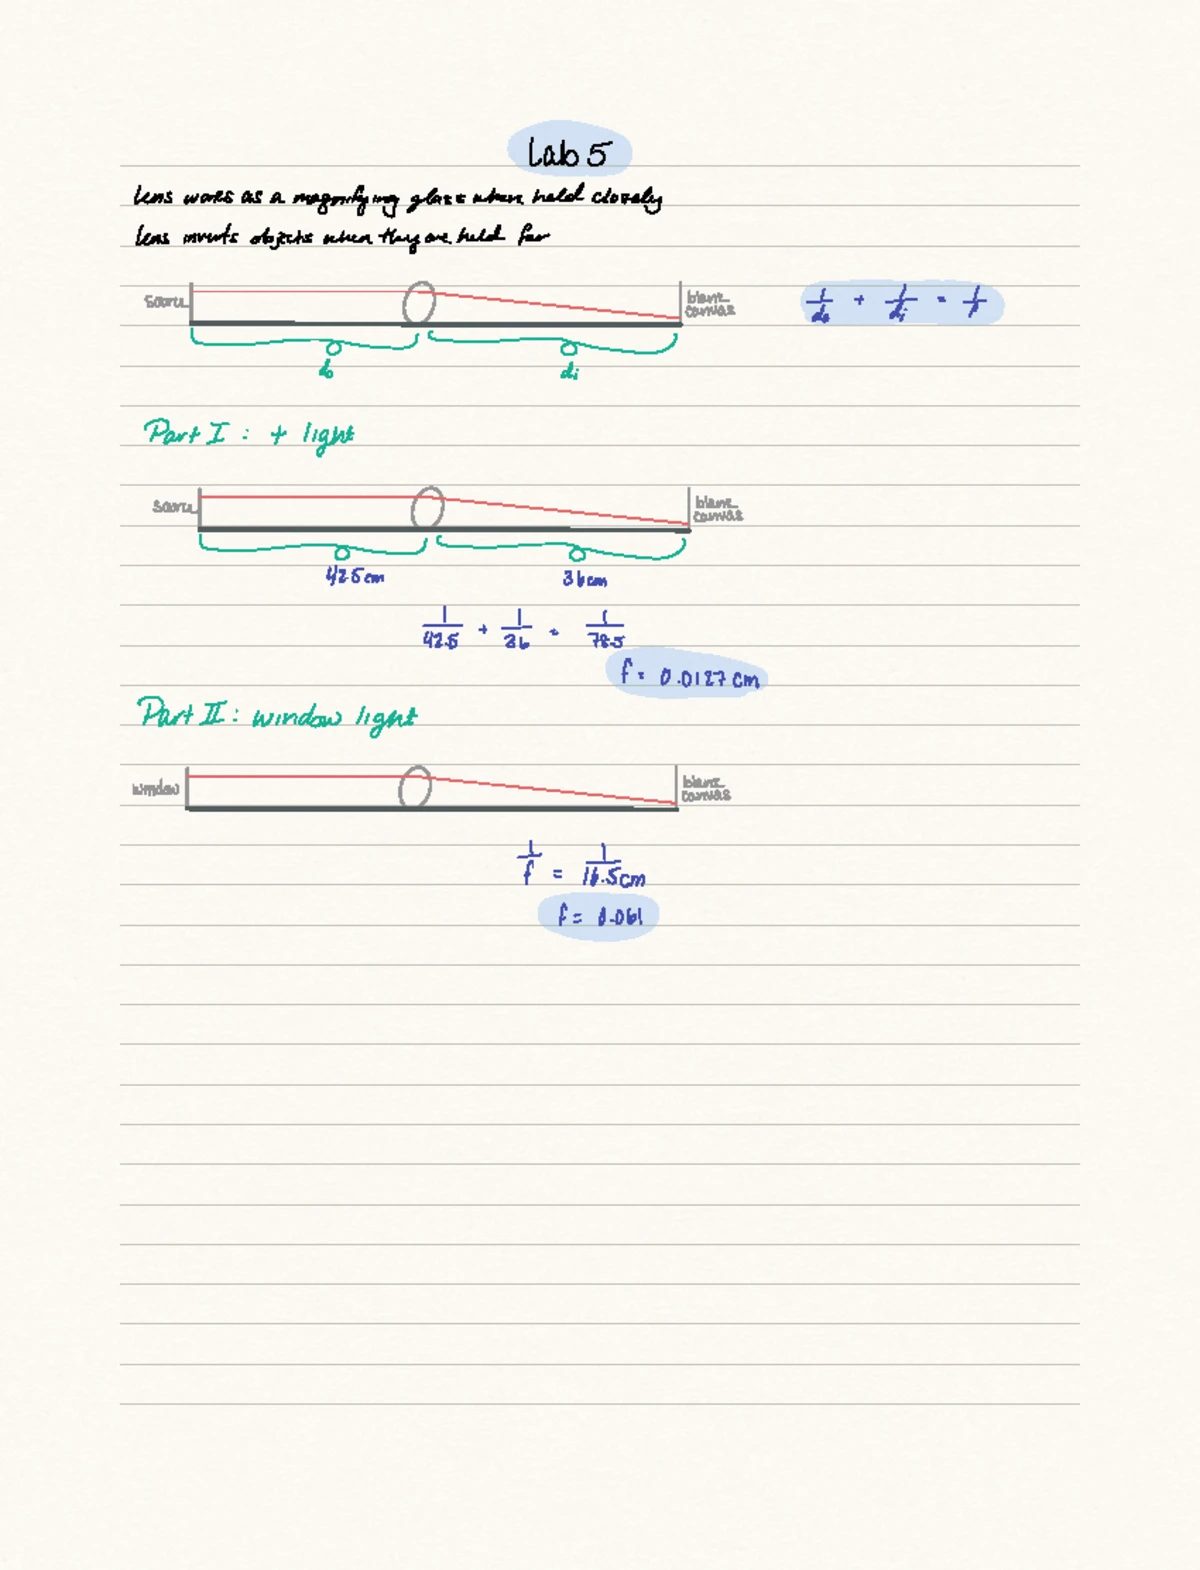 Lab 5
Lens works as a magnifying glass when held closely
Lens inverts objects when they are held far
Source
blank
canvas
1/do + 1/di = 1/f
do
di
Part I: + light
Source
blank
canvas
42.5cm
36cm
1/42.5 + 1/36 = 1/78.5
f = 0.0127 cm
Part II: window light
window
blank
canvas
1/f = 1/16.5cm
f = 0.061